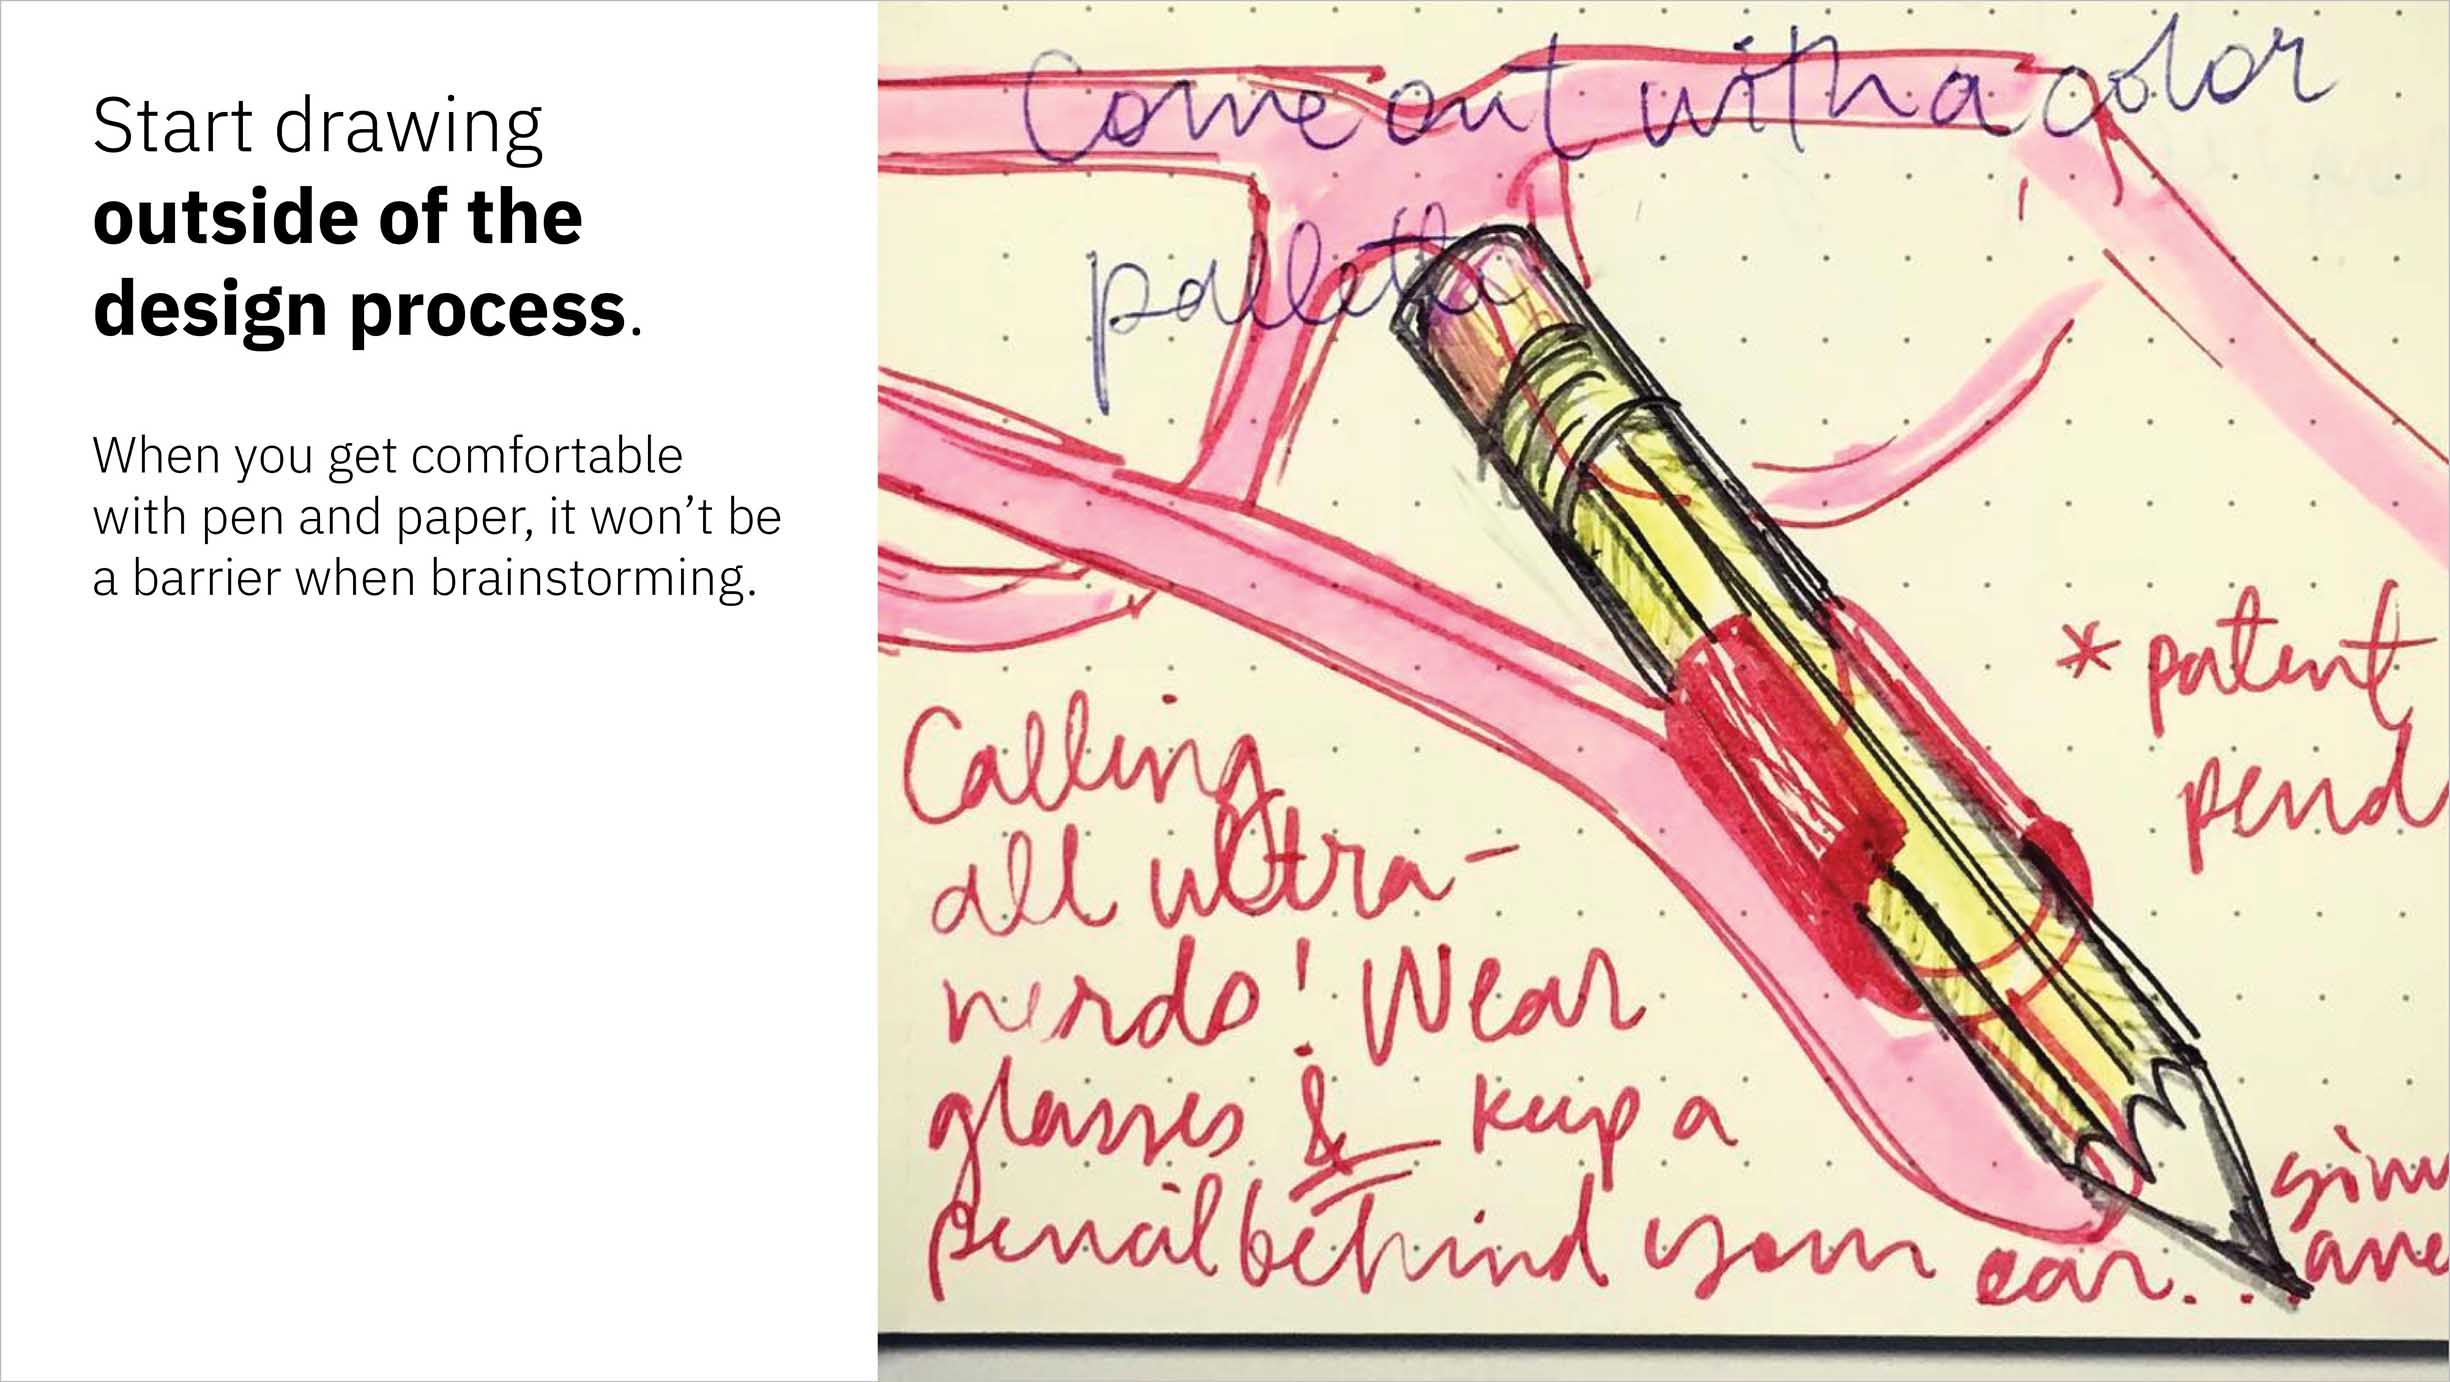 Start drawing
outside of the
design process.
When you get comfortable
with pen and paper, it won’t be
a barrier when brainstorming.
Come out with a color
palletta
* patent
pend
Calling
all ultra-
nerds! Wear
glasses & keep a
pencil behind your ear...